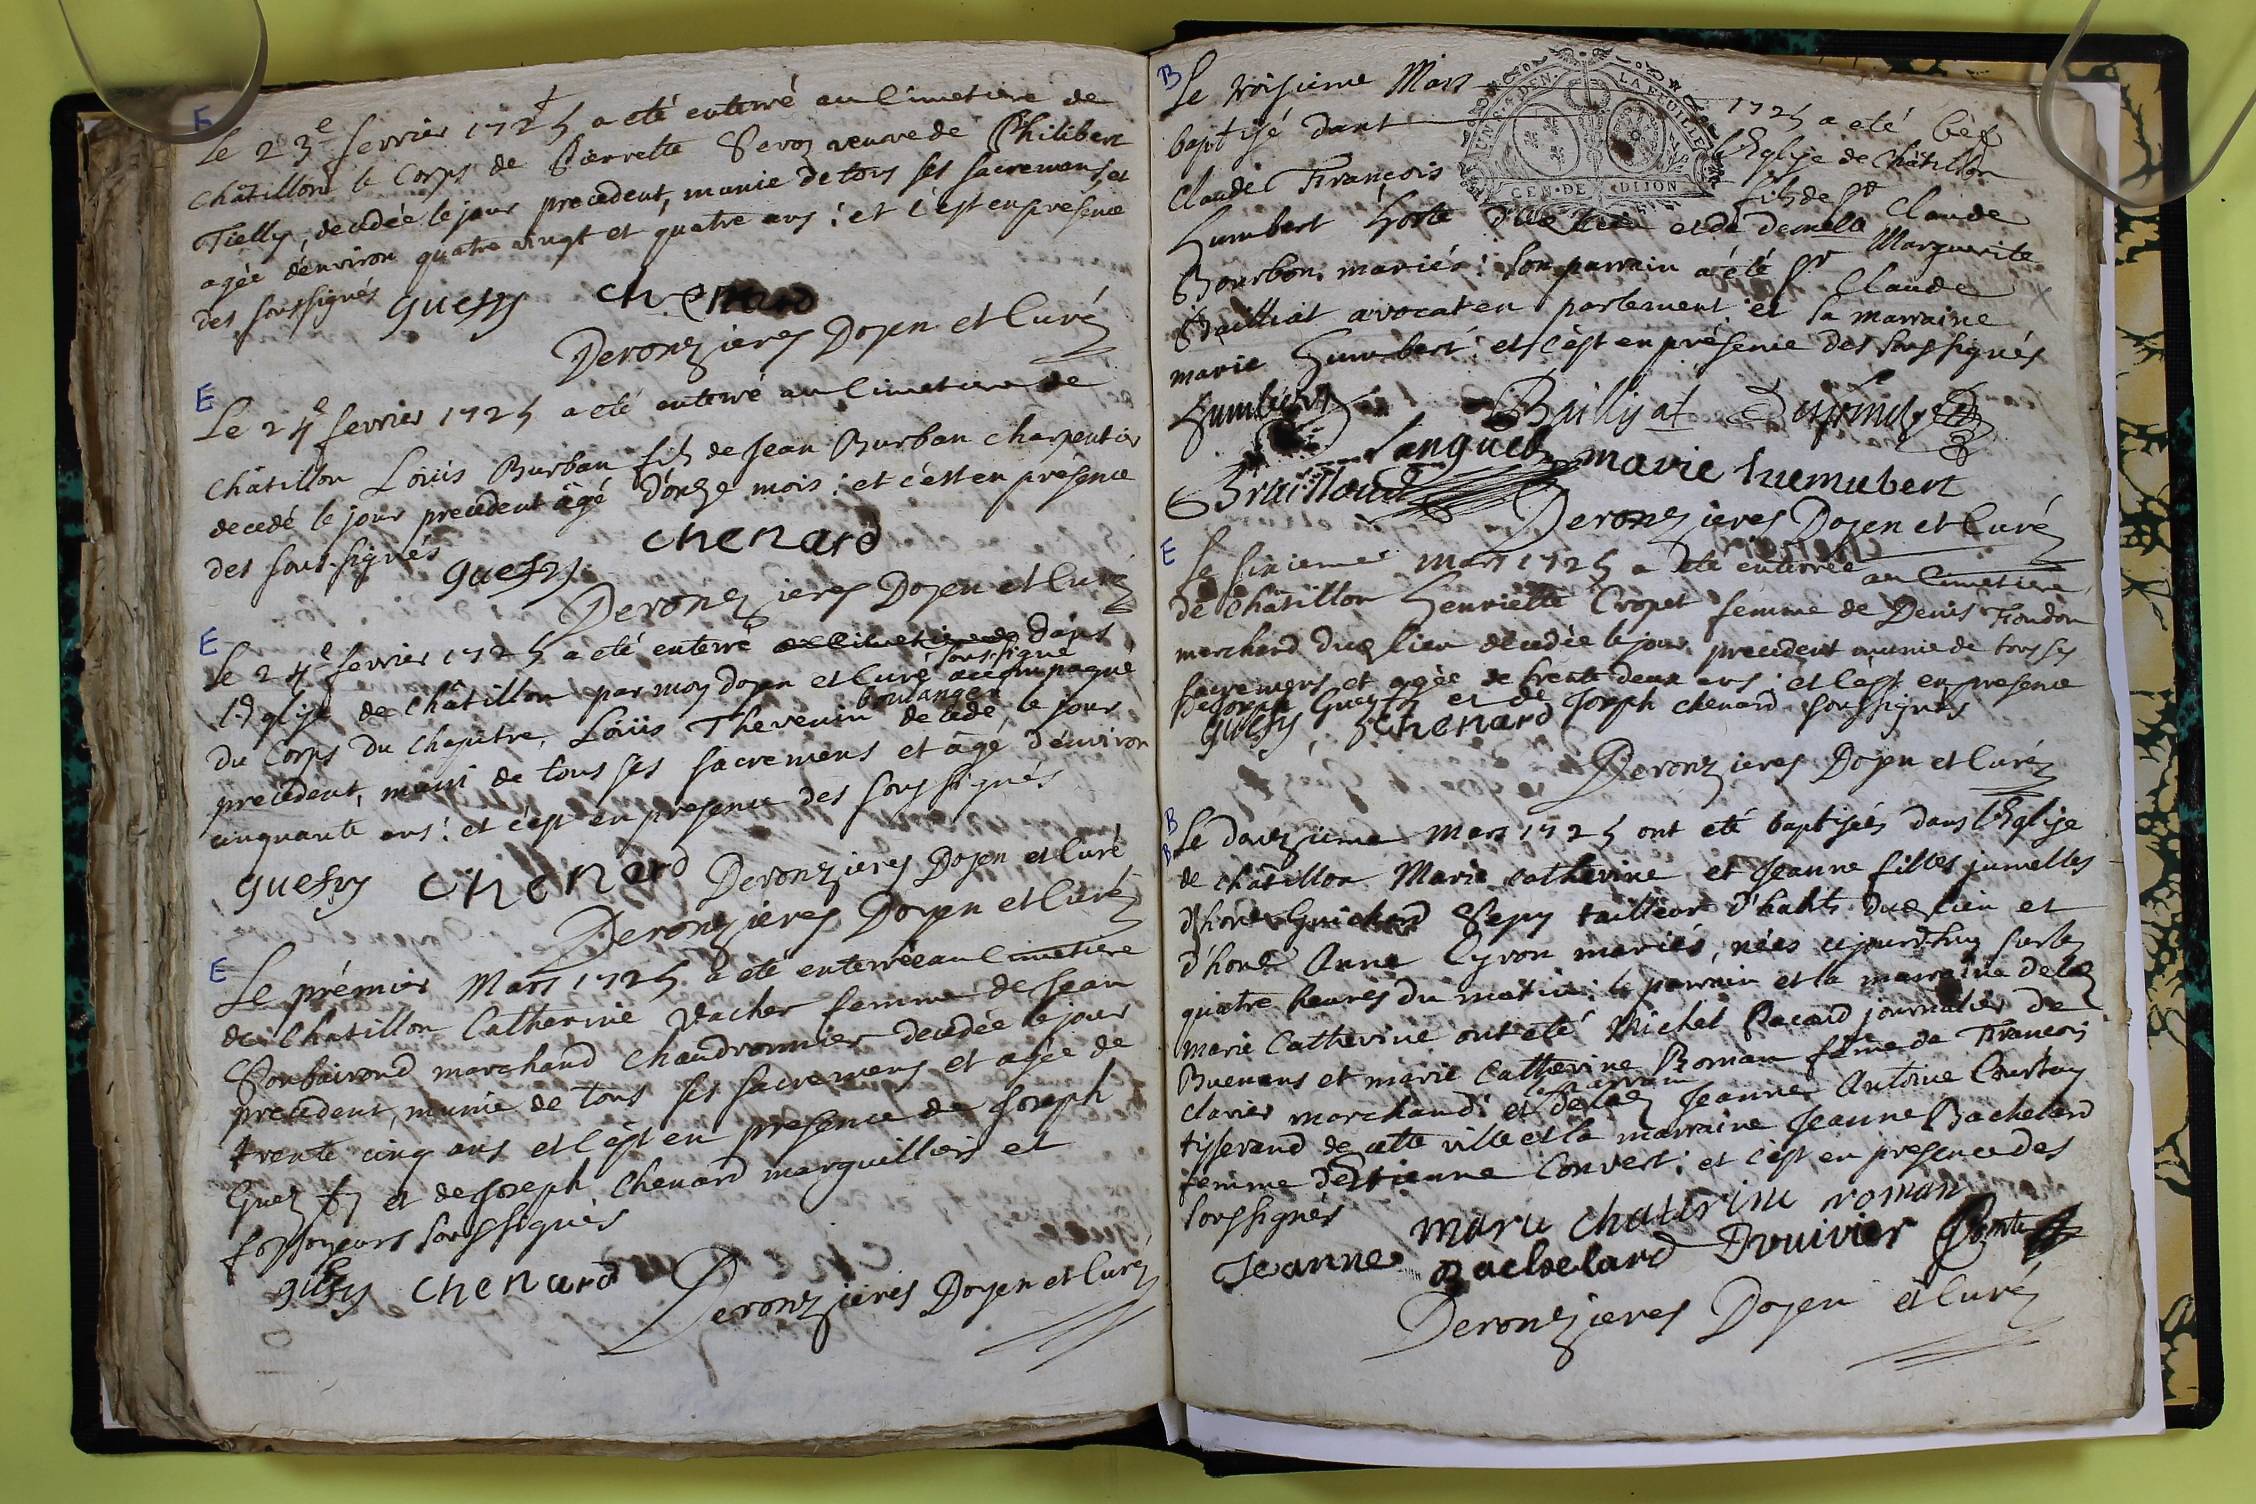 E
Le 23e fevrier 1725 a eté enterré au Cimetiere de
Châtillon le Corps de Pierrette veuve de Philibert
Tielly, decedée le jour precedent, munie de tous ses sacremens, et
agée d'environ quatre vingt et quatre ans: et c'est en presence
des soussignés
guesty chenard
Deronzieres Doyen et Curé
E
Le 24e fevrier 1725 a eté enterré au Cimetiere de
Châtillon Loüis Burban fils de Jean Burban charpentier
decedé le jour precedent âgé d'onze mois: et c'est en présence
des sous-signés
guesty chenard
Deronzieres Doyen et Curé
E
Le 24e fevrier 1725 a eté enterré au cimetiere de dans
l'Eglise de Châtillon par moy doyen et Curé soussigné accompagné
du Corps du Chapitre, Loüis Thevenin boulanger decedé, le jour
precedent, muni de tous ses sacremens et âgé d'environ
cinquante ans: et c'est en presence des soussignés
guesty chenard Deronzieres Doyen et Curé
Deronzieres Doyen et Curé
E
Le prémier Mars 1725 a eté enterrée au Cimetiere
de Chatillon Catherine Vacher femme de Jean
marchand chaudronnier decedée le jour
precedent, munie de tous ses sacremens et agée de
trente cinq ans et c'est en presence de Joseph
et de Joseph Chenard marguilliers et
fossoyeurs soussignés
guesty chenard
Deronzieres Doyen et Curé
B
Le troisieme Mars 1725 a eté
baptisé dans l'Eglise de Châtillon
Claude François fils de Sr Claude
Humbert et de demelle Marguerite
Bourbon mariés: son parrain a été Sr Claude
Bailliat avocat en parlement; et sa marraine
marie Humbert: et c'est en présence des soussignés
GEN. DE DIJON
LA FEUILLE
Humbert Baillyat
Languet marie humubert
Braillaud
Deronzieres Doyen et Curé
E
Le sixieme mars 1725 a eté enterrée au Cimetiere
de Châtillon Henriette Cropet femme de Denis Tondon
marchand dud. lieu decedée le jour precedent munie de tous ses
sacremens et agée de trente deux ans: et c'est en presence
de Joseph et de Joseph chenard soussignés
guesty chenard
Deronzieres Doyen et Curé
B
B
Le douzieme Mars 1725 ont eté baptisées dans l'Eglise
de châtillon Marie catherine et Jeanne filles jumelles
d'honète Guichard tailleur d'habits dud. lieu et
d'honète Anne Cyvon mariés, nées cejourd'huy sur les
quatre heures du matin: le parrain et la marraine de lad.
Marie Catherine ont eté Michel Pacard journalier de
Buenans et marie Catherine Roman féme de François
clavier marchand: et le parrain de lad. Jeanne Antoine
tisserand de cette ville et la marraine Jeanne Bachelard
femme d'Estienne Convert: et c'est en presence des
soussignés
marie chaterine roman
Jeanne Bachelard Druivier
Deronzieres Doyen et Curé